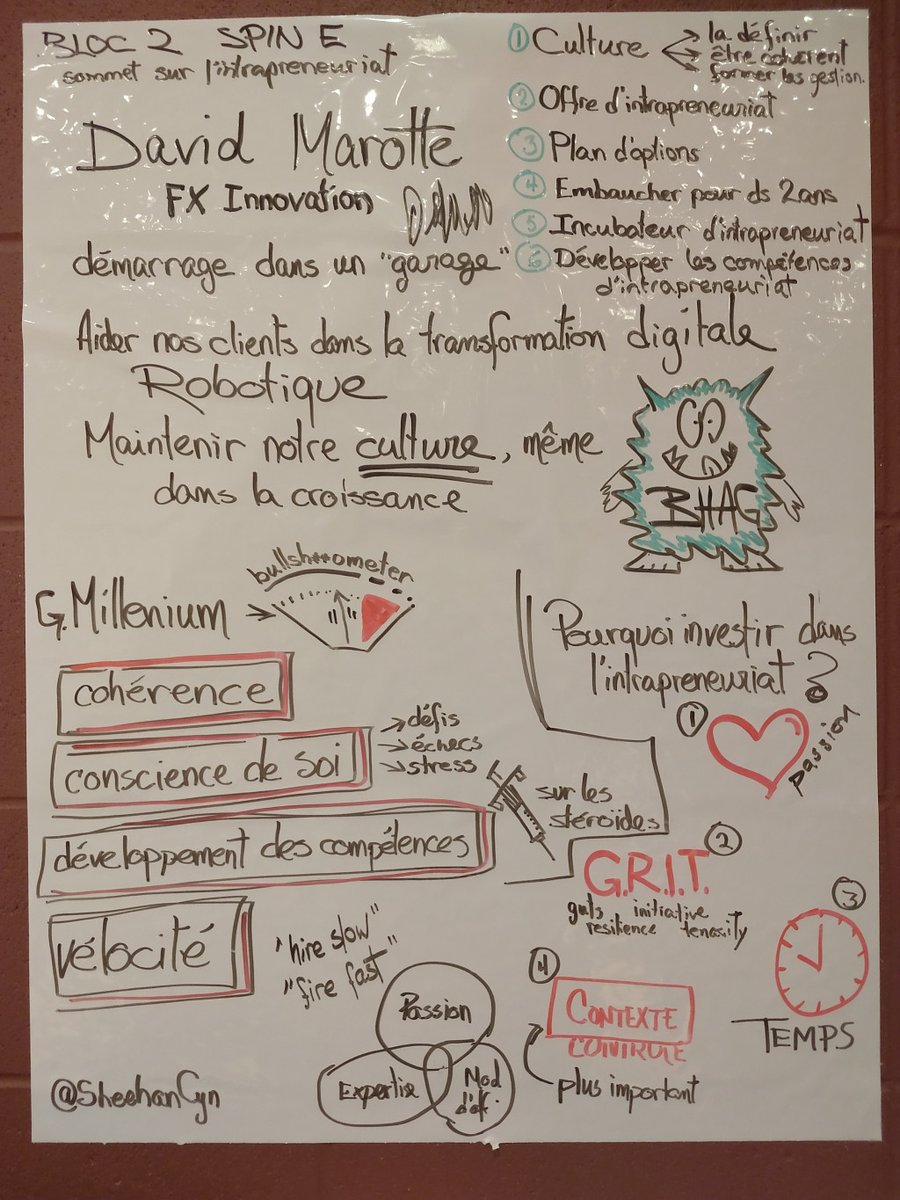 BLOC 2 SPIN E
sommet sur l'intrapreneuriat
David Marotte
FX Innovation
démarrage dans un "garage"
① Culture
la définir
être cohérent
former les gestion.
② Offre d'intrapreneuriat
③ Plan d'options
④ Embaucher pour ds 2ans
⑤ Incubateur d'intrapreneuriat
⑥ Développer les compétences
d'intrapreneuriat
Aider nos clients dans la transformation digitale
Robotique
Maintenir notre culture, même
dans la croissance
BHAG
G.Millenium
bullsh**ometer
cohérence
conscience de soi
défis
échecs
stress
développement des compétences
sur les
stéroides
vélocité
"hire slow"
"fire fast"
Passion
Expertise
Mod
d'aff.
@SheehanCyn
Pourquoi investir dans
l'intrapreneuriat ?
①
passion
②
G.R.I.T.
guts initiative
resilience tenasity
③
TEMPS
④
CONTEXTE
CONTROLE
plus important